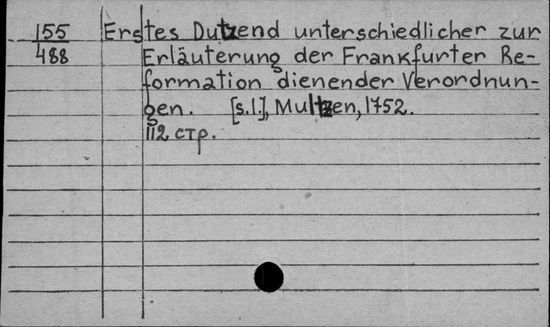 155 Erstes Dutzend unterschiedlicher zur
488 Erläuterung der Frankfurter Re-
formation dienender Verordnun-
gen. [s.l.], Multzen, 1752.
112 стр.